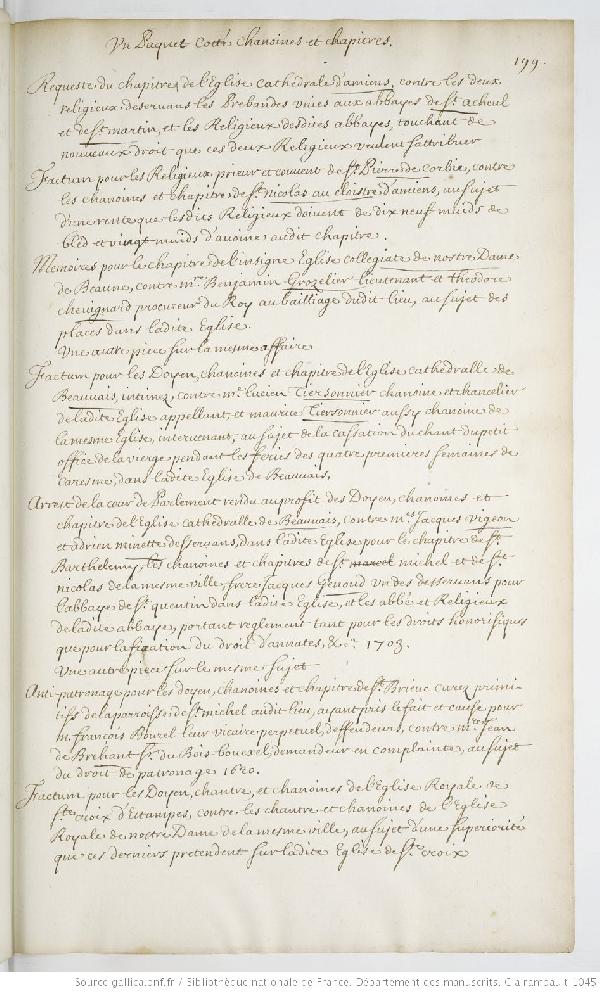 Un Paquet Cotté Chanoines et chapitres.
199.
Requeste du chapitre de l'Eglise Cathedrale d'amiens, contre les deux
religieux deservans les Prebandes unies aux abbayes de St. acheul
et de St. martin, et les Religieux desdites abbayes, touchant de
nouveaux droit que ces deux Religieux veulent s'attribuer
Factum pour les Religieux prieur et couvent de St. Pierre de Corbie, contre
les chanoines et chapitre de St. Nicolas au cloistre d'amiens, au sujet
d'une rente que lesdits Religieux doivent de dix neuf muids de
bled et vingt muids d'avoine audit chapitre.
Memoires pour le chapitre de l'insigne Eglise collegiate de nostre Dame
de Beaune, contre mre. Benjamin Grozelier lieutenant et theodore
chevignard procureur du Roy au bailliage dudit lieu, au sujet des
places dans ladite Eglise.
Une autre piece sur la mesme affaire
Factum pour les Doyen, chanoines et chapitre de l'Eglise cathedralle de
Beauvais, intimez, contre mre. Lucien Tiersonnier chanoine et chancelier
de ladite Eglise appellant, et maurice Tiersonnier aussy chanoine de
la mesme Eglise, intervenant, au sujet de la cassation du chant du petit
office de la vierge pendant les feries des quatre premieres semaines de
Caresme, dans ladite Eglise de Beauvais.
Arrest de la cour de Parlement rendu au profit des Doyen, chanoines et
chapitre de l'Eglise cathedralle de Beauvais, contre mes. Jacques Vigeon
et adrien minette desservans, dans ladite Eglise pour le chapitre de St.
Barthelemy, les chanoines et chapitres de St. marcel michel et de St.
nicolas de la mesme ville, frere Jacques Genoud un des desservans pour
l'abbaye de St. quentin dans ladite Eglise, et les abbé et Religieux
de ladite abbaye, portant reglement tant pour les droits honorifiques
que pour la fixation du droit d'annates, &ca. 1703.
Une autre piece sur le mesme sujet
Anti-patronage pour les doyen, chanoines et chapitre de St. Brieuc curez primi-
tifs de la parroisse de St. michel audit lieu, ayant pris le fait et cause pour
m. françois Bourel leur vicaire perpetuel, deffendeurs, contre mre. Jean
de Brehant Sr. du Bois-bouexel, demandeur en complainte, au sujet
du droit de patronage 1620.
Factum pour les Doyen, chantre, et chanoines de l'Eglise Royale de
Ste. croix d'Estampes, contre les chantre et chanoines de l'Eglise
Royale de nostre Dame de la mesme ville, au sujet d'une superiorité
que ces derniers pretendent sur ladite Eglise de Ste. croix
Source gallica.bnf.fr / Bibliothèque nationale de France. Département des manuscrits. Clairambault 1045